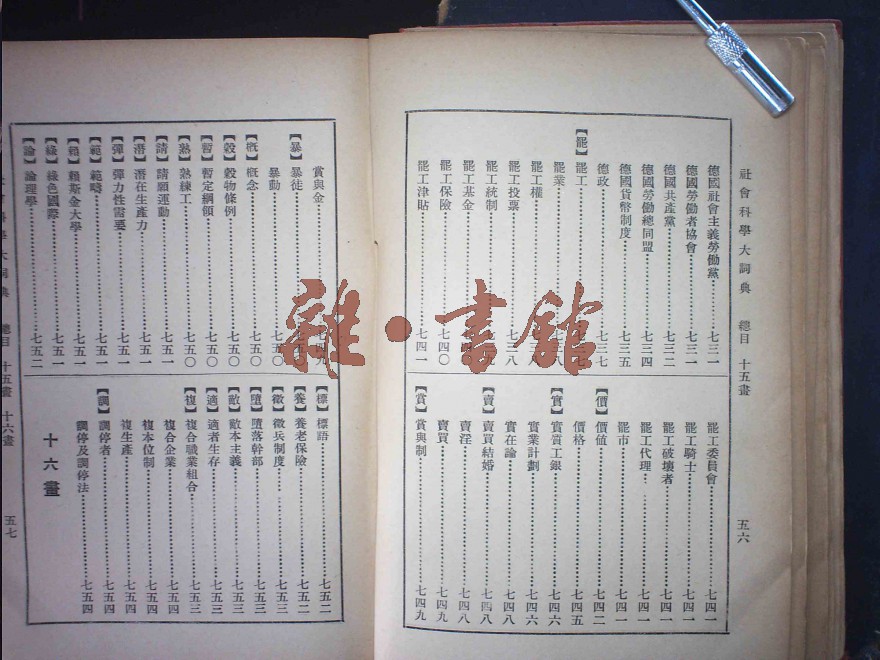 社會科學大詞典 總目 十五畫 五六
德國社會主義勞働黨 七三一
德國勞働者協會 七三一
德國共產黨 七三二
德國勞働總同盟 七三四
德國貨幣制度 七三五
德政 七三七
【罷】罷工
罷業
罷工權
罷工投票 七三八
罷工統制
罷工基金
罷工保險 七四〇
罷工津貼 七四一
罷工委員會 七四一
罷工騎士 七四一
罷工破壞者 七四一
罷工代理 七四一
罷市 七四一
【價】價値 七四二
價格 七四五
【實】實質工銀 七四六
實業計劃 七四六
實在論 七四八
【賣】賣買結婚 七四八
賣淫 七四八
賣買 七四九
【賞】賞與制 七四九
賞與金
【暴】暴徒
暴動 七五〇
【槪】槪念 七五〇
【穀】穀物條例 七五〇
【暫】暫定綱領 七五〇
【熟】熟練工 七五〇
【請】請願運動 七五一
【潛】潛在生產力 七五一
【彈】彈力性需要 七五一
【範】範疇 七五一
【賴】賴斯金大學 七五一
【綠】綠色國際 七五一
【論】論理學 七五二
【標】標語 七五二
【養】養老保險 七五二
【徵】徵兵制度 七五三
【墮】墮落幹部 七五三
【敵】敵本主義 七五三
【適】適者生存 七五三
【複】複合職業組合 七五三
複合企業 七五四
複本位制 七五四
複生產 七五四
【調】調停者 七五四
調停及調停法 七五四
十六畫
社會科學大詞典 總目 十五畫 十六畫 五七
雜·書館